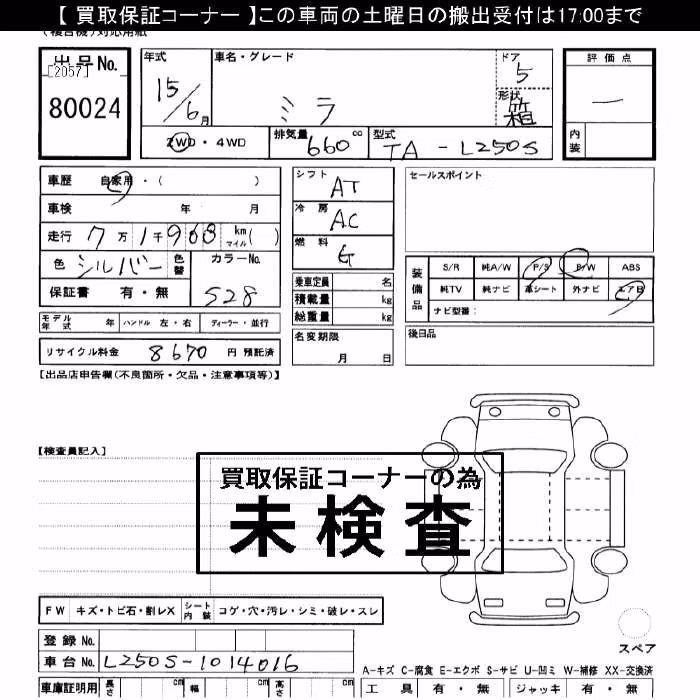 【 買取保証コーナー 】この車両の土曜日の搬出受付は17:00まで
(複合機)対応用紙
出品No. [2057] 80024
年式 15/6月
車名・グレード ミラ
ドア 5
形状 箱
評価点 —
内装
2WD ・ 4WD
排気量 660 cc
型式 TA - L250S
車歴 自家用 ・ ( )
車検 年 月
走行 7万1千968 km マイル ( )
色 シルバー 色替
カラーNo. 528
保証書 有 ・ 無
モデル年式 年 ハンドル 左 ・ 右 ディーラー ・ 並行
リサイクル料金 8670 円 預託済
シフト AT
冷房 AC
燃料 G
乗車定員 名
積載量 kg
総重量 kg
名変期限 月 日
セールスポイント
装備品 S/R 純A/W P/S P/W ABS
純TV 純ナビ 革シート 外ナビ エアB
ナビ型番:
後日品
【出品店申告欄(不良箇所・欠品・注意事項等)】
【検査員記入】
買取保証コーナーの為
未検査
FW キズ・トビ石・割レX シート内装 コゲ・穴・汚レ・シミ・破レ・スレ
スペア
登録 No.
車台 No. L250S-1014016
A-キズ C-腐食 E-エクボ S-サビ U-凹ミ W-補修 XX-交換済
車庫証明用 長さ cm 幅 cm 高さ cm
工具 有 ・ 無 ジャッキ 有 ・ 無